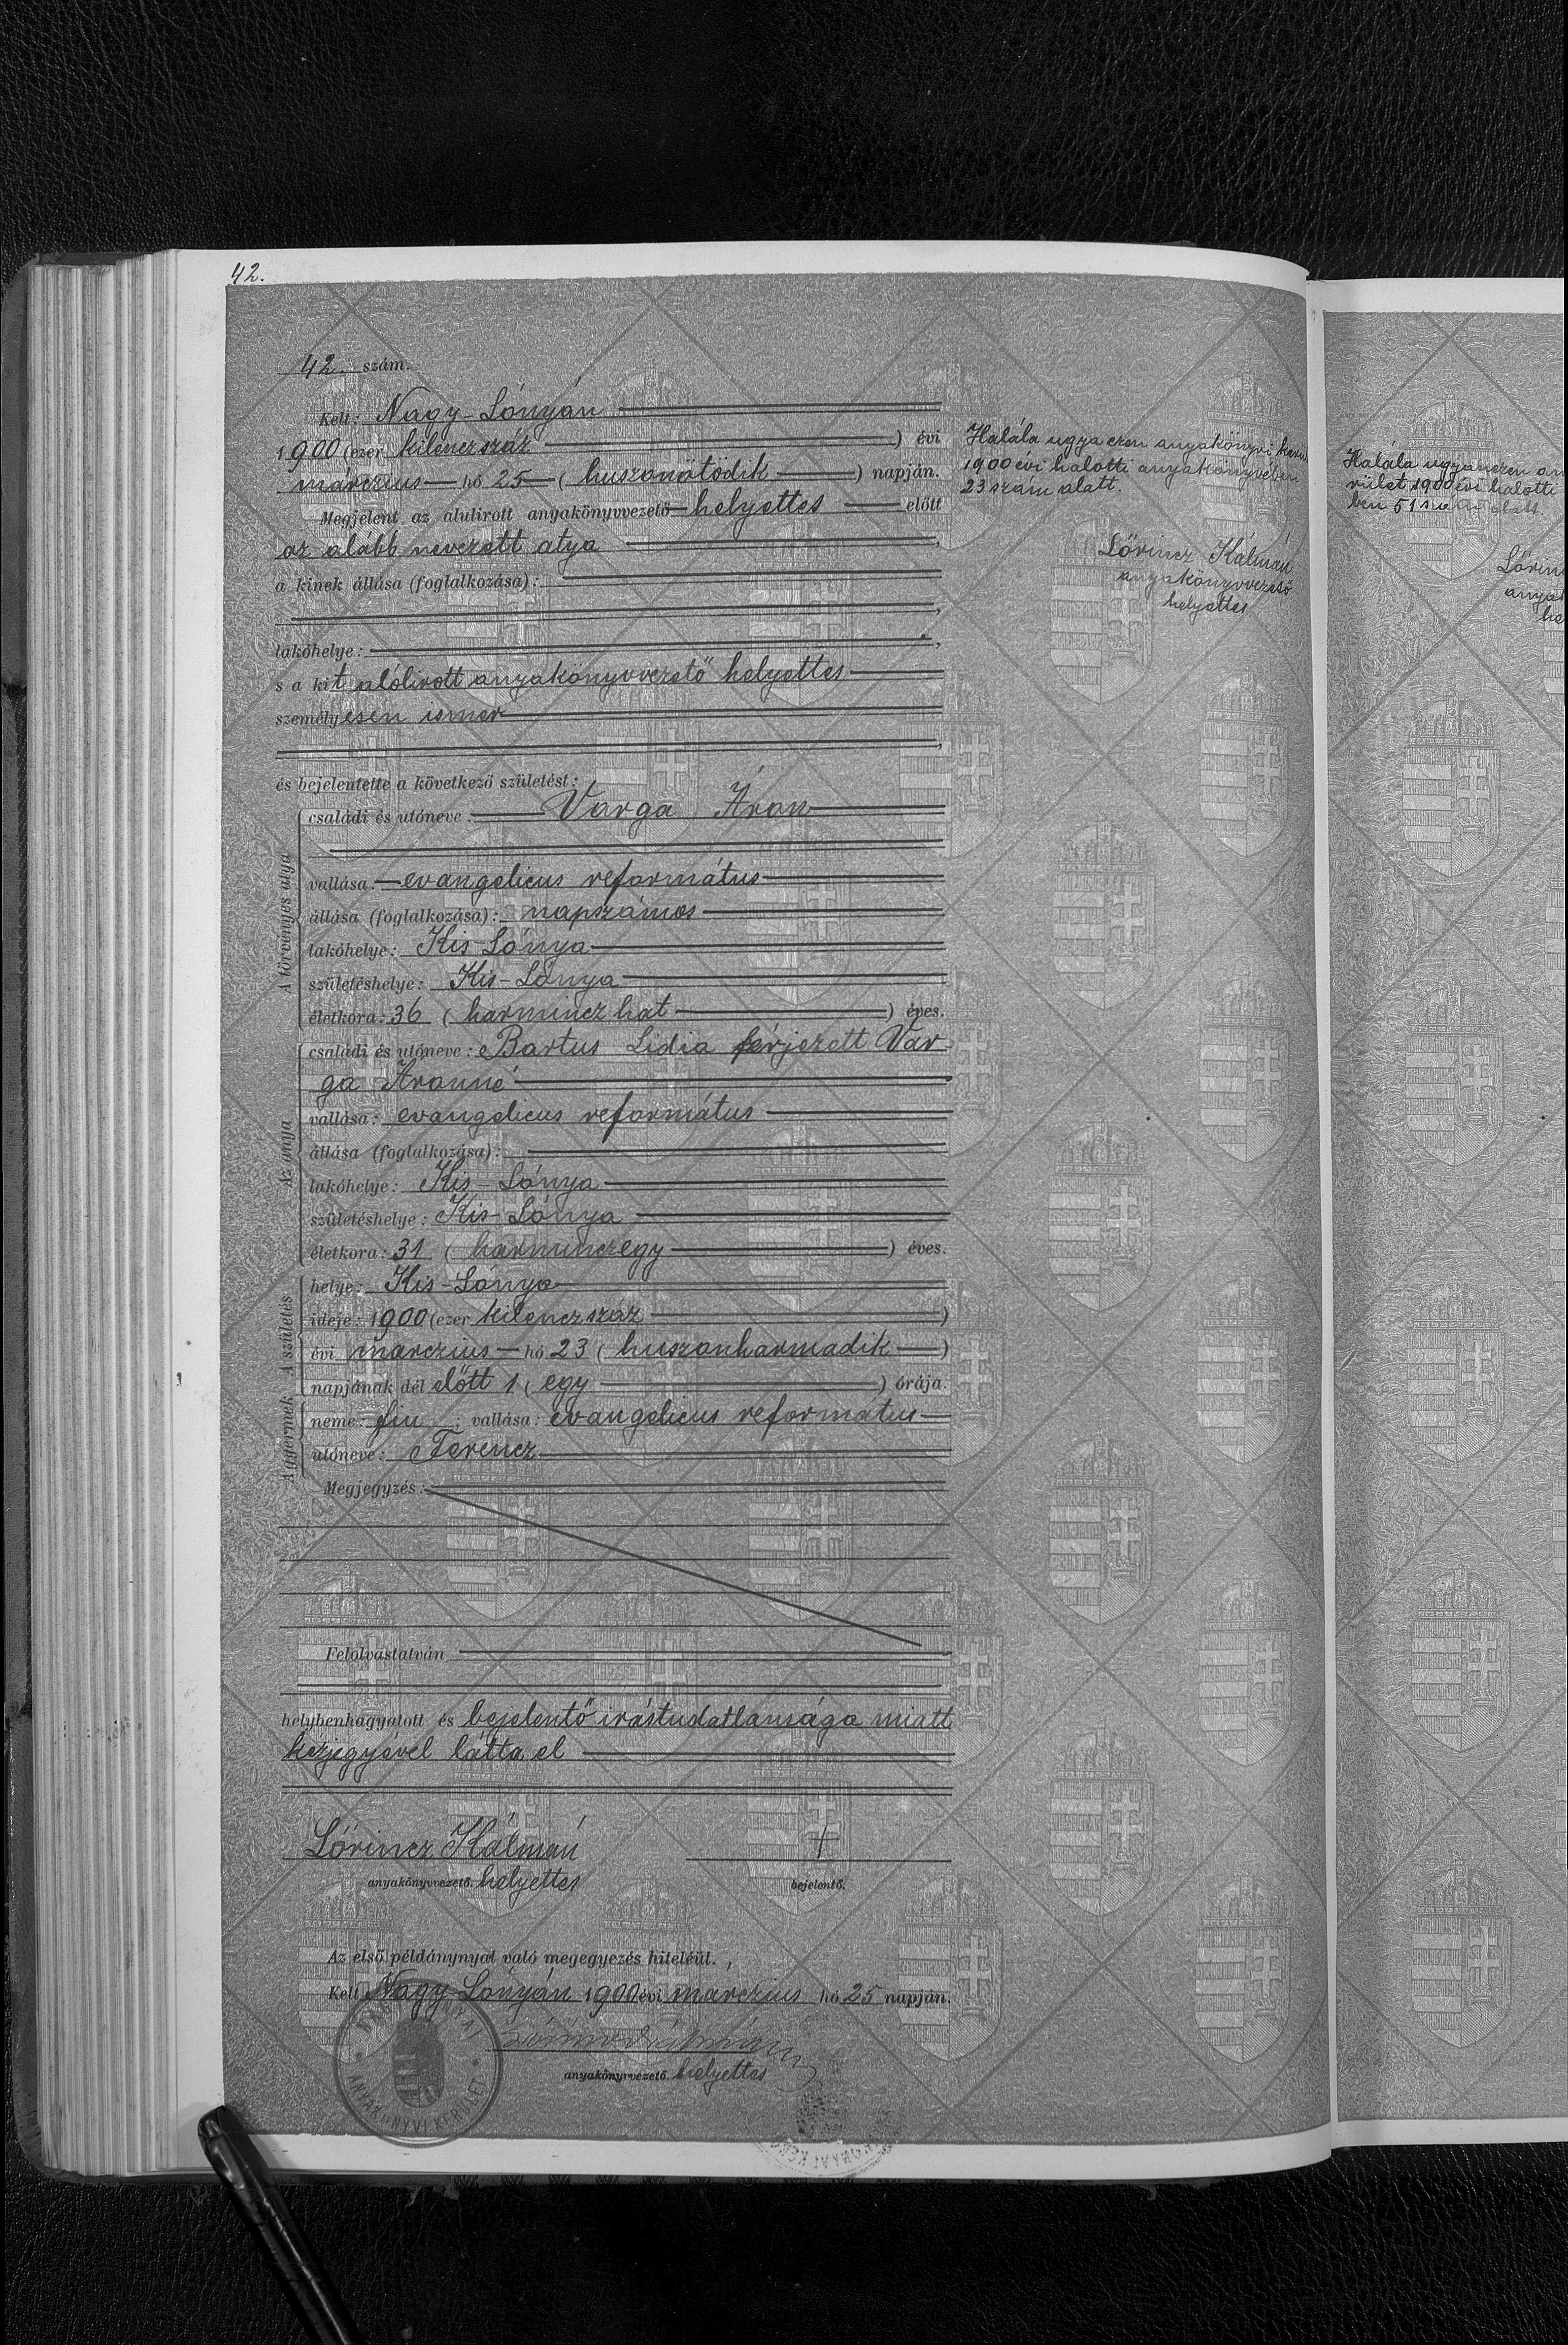 42.
42. szám.
Kelt: Nagy-Lónyán
1900 (ezer kilenczszáz) évi
márczius hó 25 (huszonötödik) napján.
Megjelent az alulirott anyakönyvvezető helyettes előtt
az alább nevezett atya,
a kinek állása (foglalkozása):
lakóhelye:
s a kit alólirott anyakönyvvezető helyettes
személyesen ismer
és bejelentette a következő születést:
A törvényes atya
családi és utóneve: Varga Áron
vallása: evangelicus református
állása (foglalkozása): napszámos
lakóhelye: Kis-Lónya
születéshelye: Kis-Lónya
életkora: 36 (harmincz hat) éves.
Az anya
családi és utóneve: Bartus Lidia férjezett Var
ga Áronné
vallása: evangelicus református
állása (foglalkozása):
lakóhelye: Kis-Lónya
születéshelye: Kis-Lónya
életkora: 31 (harminczegy) éves.
A születés
helye: Kis-Lónya
ideje: 1900 (ezer kilenczszáz)
évi márczius hó 23 (huszonharmadik)
napjának dél előtt 1 (egy) órája.
A gyermek
neme: fiu; vallása: evangelicus református
utóneve: Ferencz
Megjegyzés:
Felolvastatván
helybenhagyatott és bejelentő irástudatlansága miatt
kézjegyével látta el
Lőrincz Kálmán
anyakönyvvezető. helyettes
bejelentő.
Az első példánynyal való megegyezés hiteléül.
Kelt Nagy Lónyán 1900 évi márczius hó 25 napján.
Lőrincz Kálmán
anyakönyvvezető. helyettes
ANYAKÖNYVI KERÜLET
Halála ugya ezen anyakönyvi
1900 évi halotti anyakönyvében
23 szám alatt.
Lőrincz Kálmán
anyakönyvvezető
helyettes
Halála ugyanezen
rület 1900 évi halotti
ben 51 szám alatt.